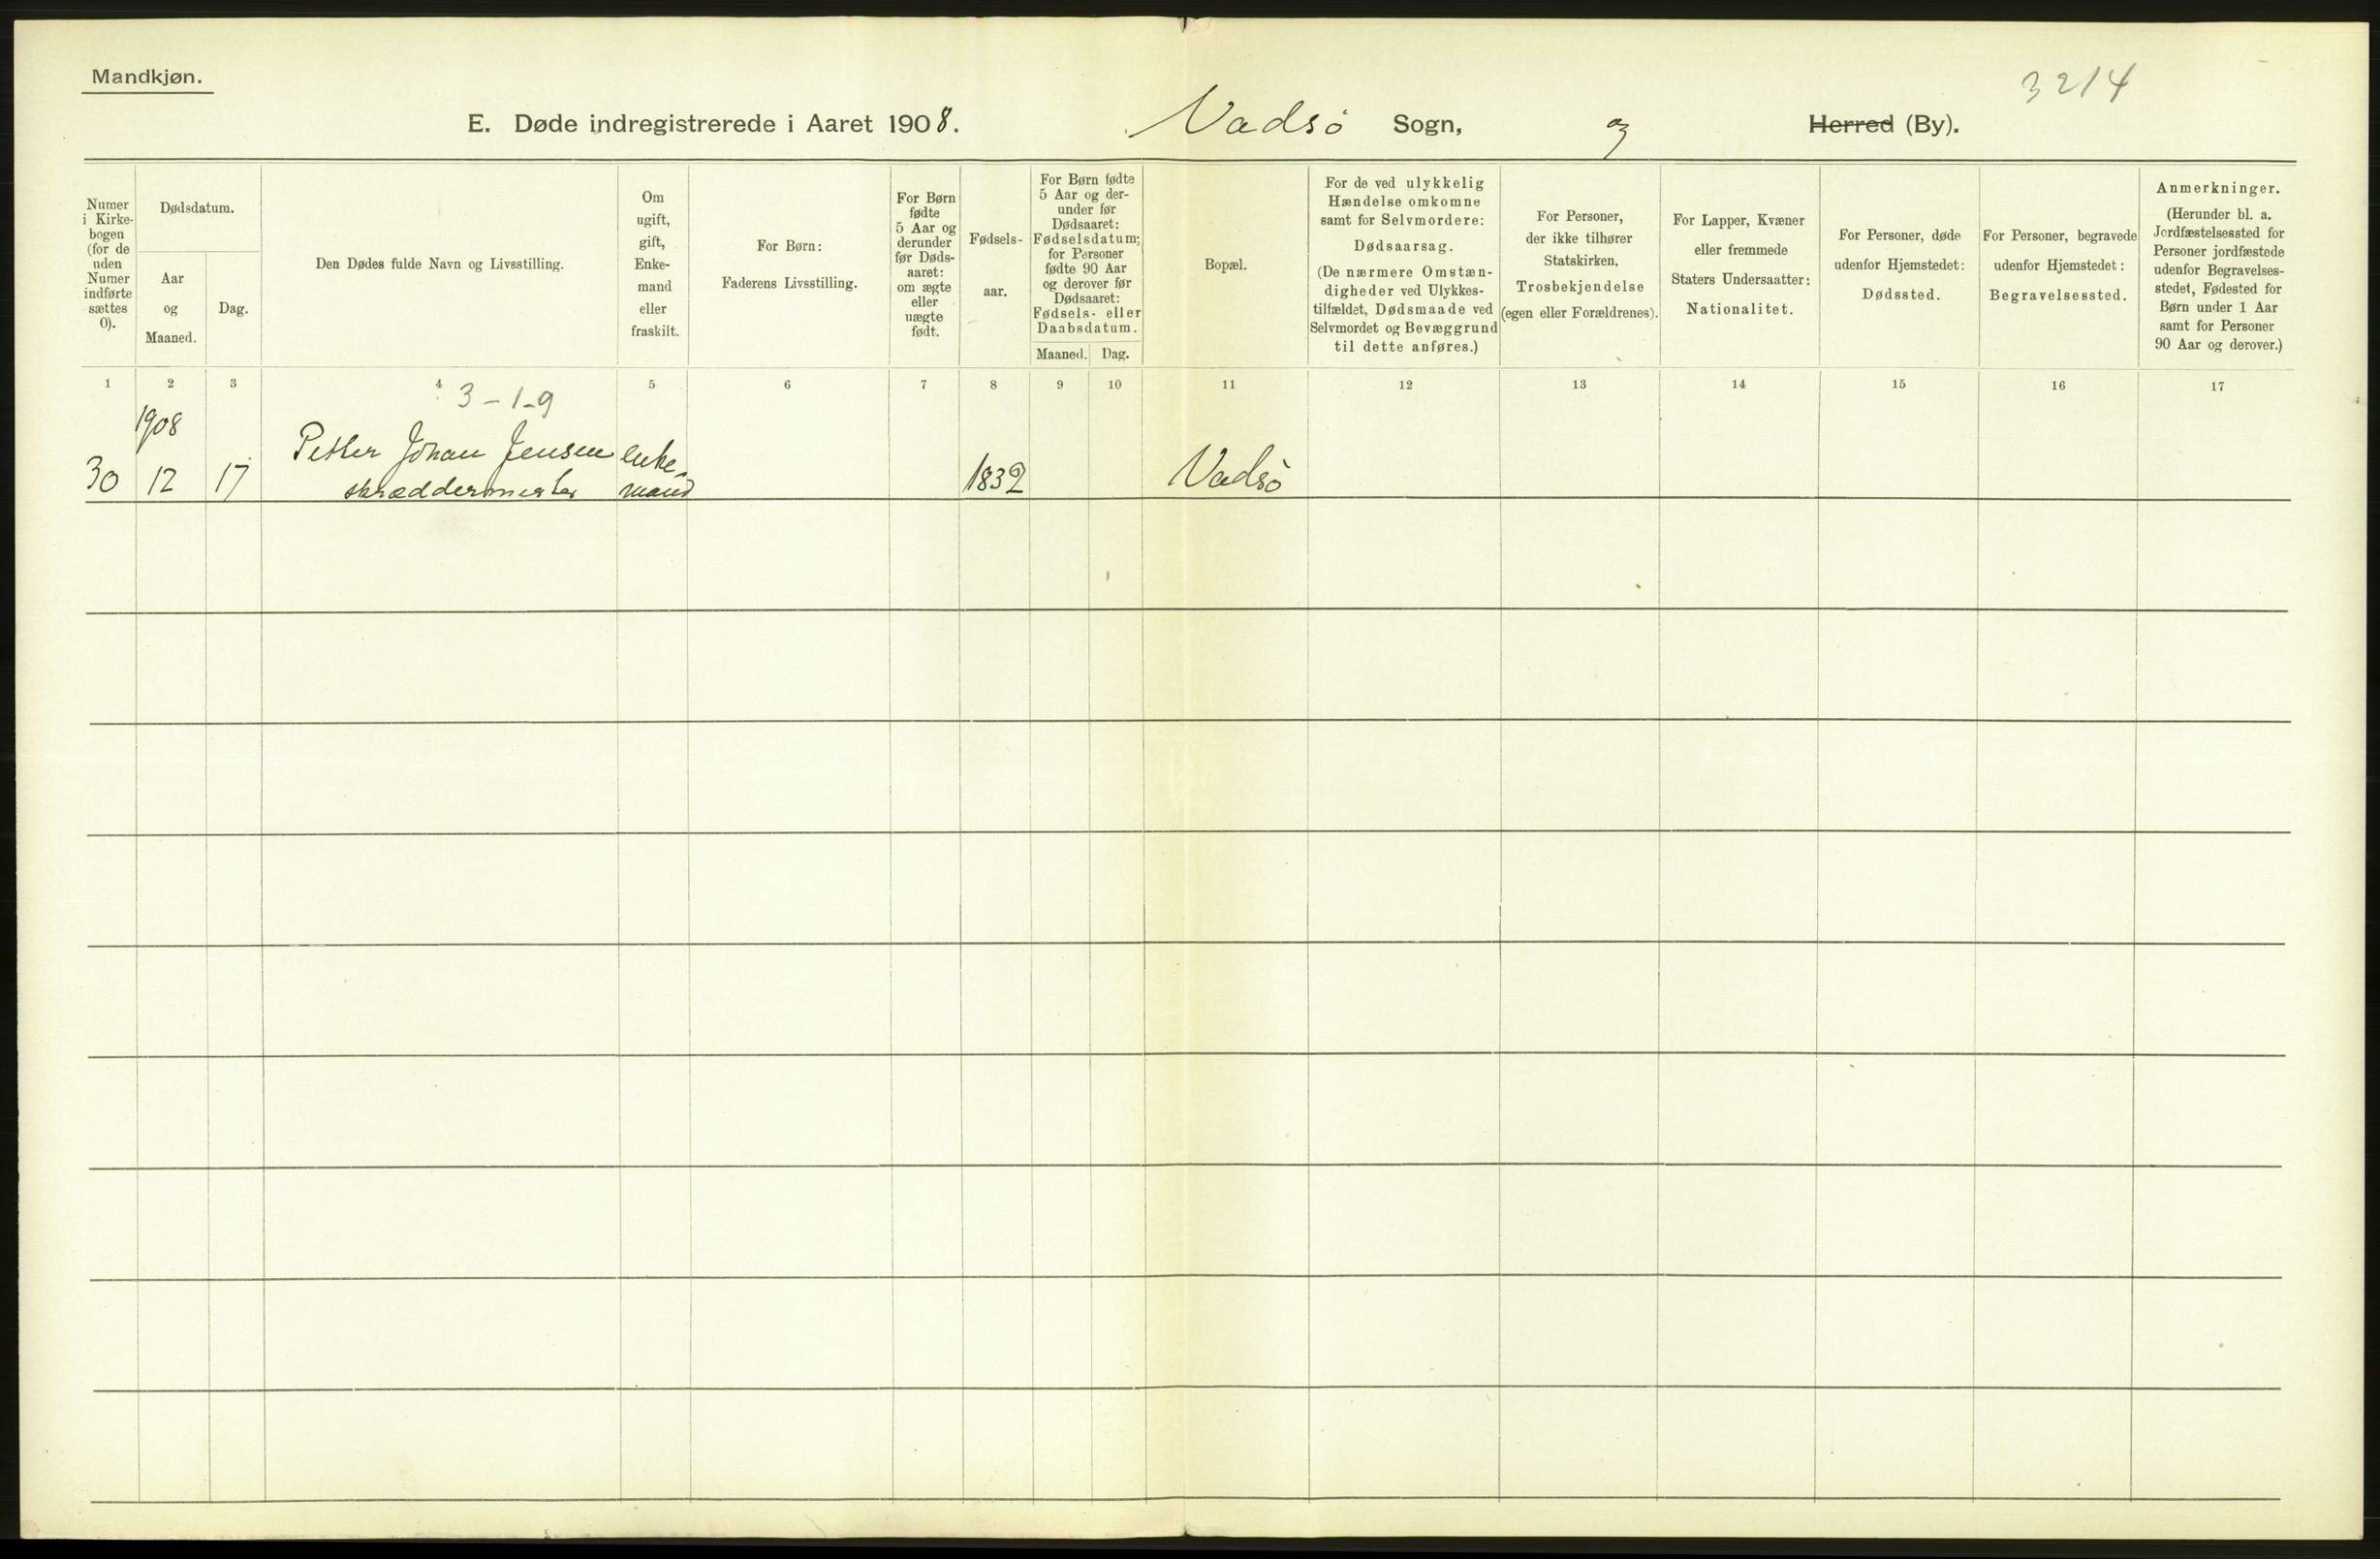 Mandkjøn.
3214
E. Døde indregistrerede i Aaret 1908. Vadsö Sogn, og Herred (By).
Numer
i Kirke-
bogen
(for de
uden
Numer
indførte
sættes
0).
Dødsdatum.
Aar
og
Maaned.
Dag.
Den Dødes fulde Navn og Livsstilling.
Om
ugift,
gift,
Enke-
mand
eller
fraskilt.
For Børn:
Faderens Livsstilling.
For Børn
fødte
5 Aar og
derunder
før Døds-
aaret:
om ægte
eller
uægte
født.
Fødsels-
aar.
For Børn fødte
5 Aar og der-
under før
Dødsaaret:
Fødselsdatum;
for Personer
fødte 90 Aar
og derover før
Dødsaaret:
Fødsels- eller
Daabsdatum.
Maaned. Dag.
Bopæl.
For de ved ulykkelig
Hændelse omkomne
samt for Selvmordere:
Dødsaarsag.
(De nærmere Omstæn-
digheder ved Ulykkes-
tilfældet, Dødsmaade ved
Selvmordet og Bevæggrund
til dette anføres.)
For Personer,
der ikke tilhører
Statskirken,
Trosbekjendelse
(egen eller Forældrenes).
For Lapper, Kvæner
eller fremmede
Staters Undersaatter:
Nationalitet.
For Personer, døde
udenfor Hjemstedet:
Dødssted.
For Personer, begravede
udenfor Hjemstedet:
Begravelsessted.
Anmerkninger.
(Herunder bl. a.
Jordfæstelsessted for
Personer jordfæstede
udenfor Begravelses-
stedet, Fødested for
Børn under 1 Aar
samt for Personer
90 Aar og derover.)
1 2 3 4 5 6 7 8 9 10 11 12 13 14 15 16 17
3-1-9
1908
Petter Johan Jensen enke-
30 12 17 skræddermester mand 1832 Vadsö